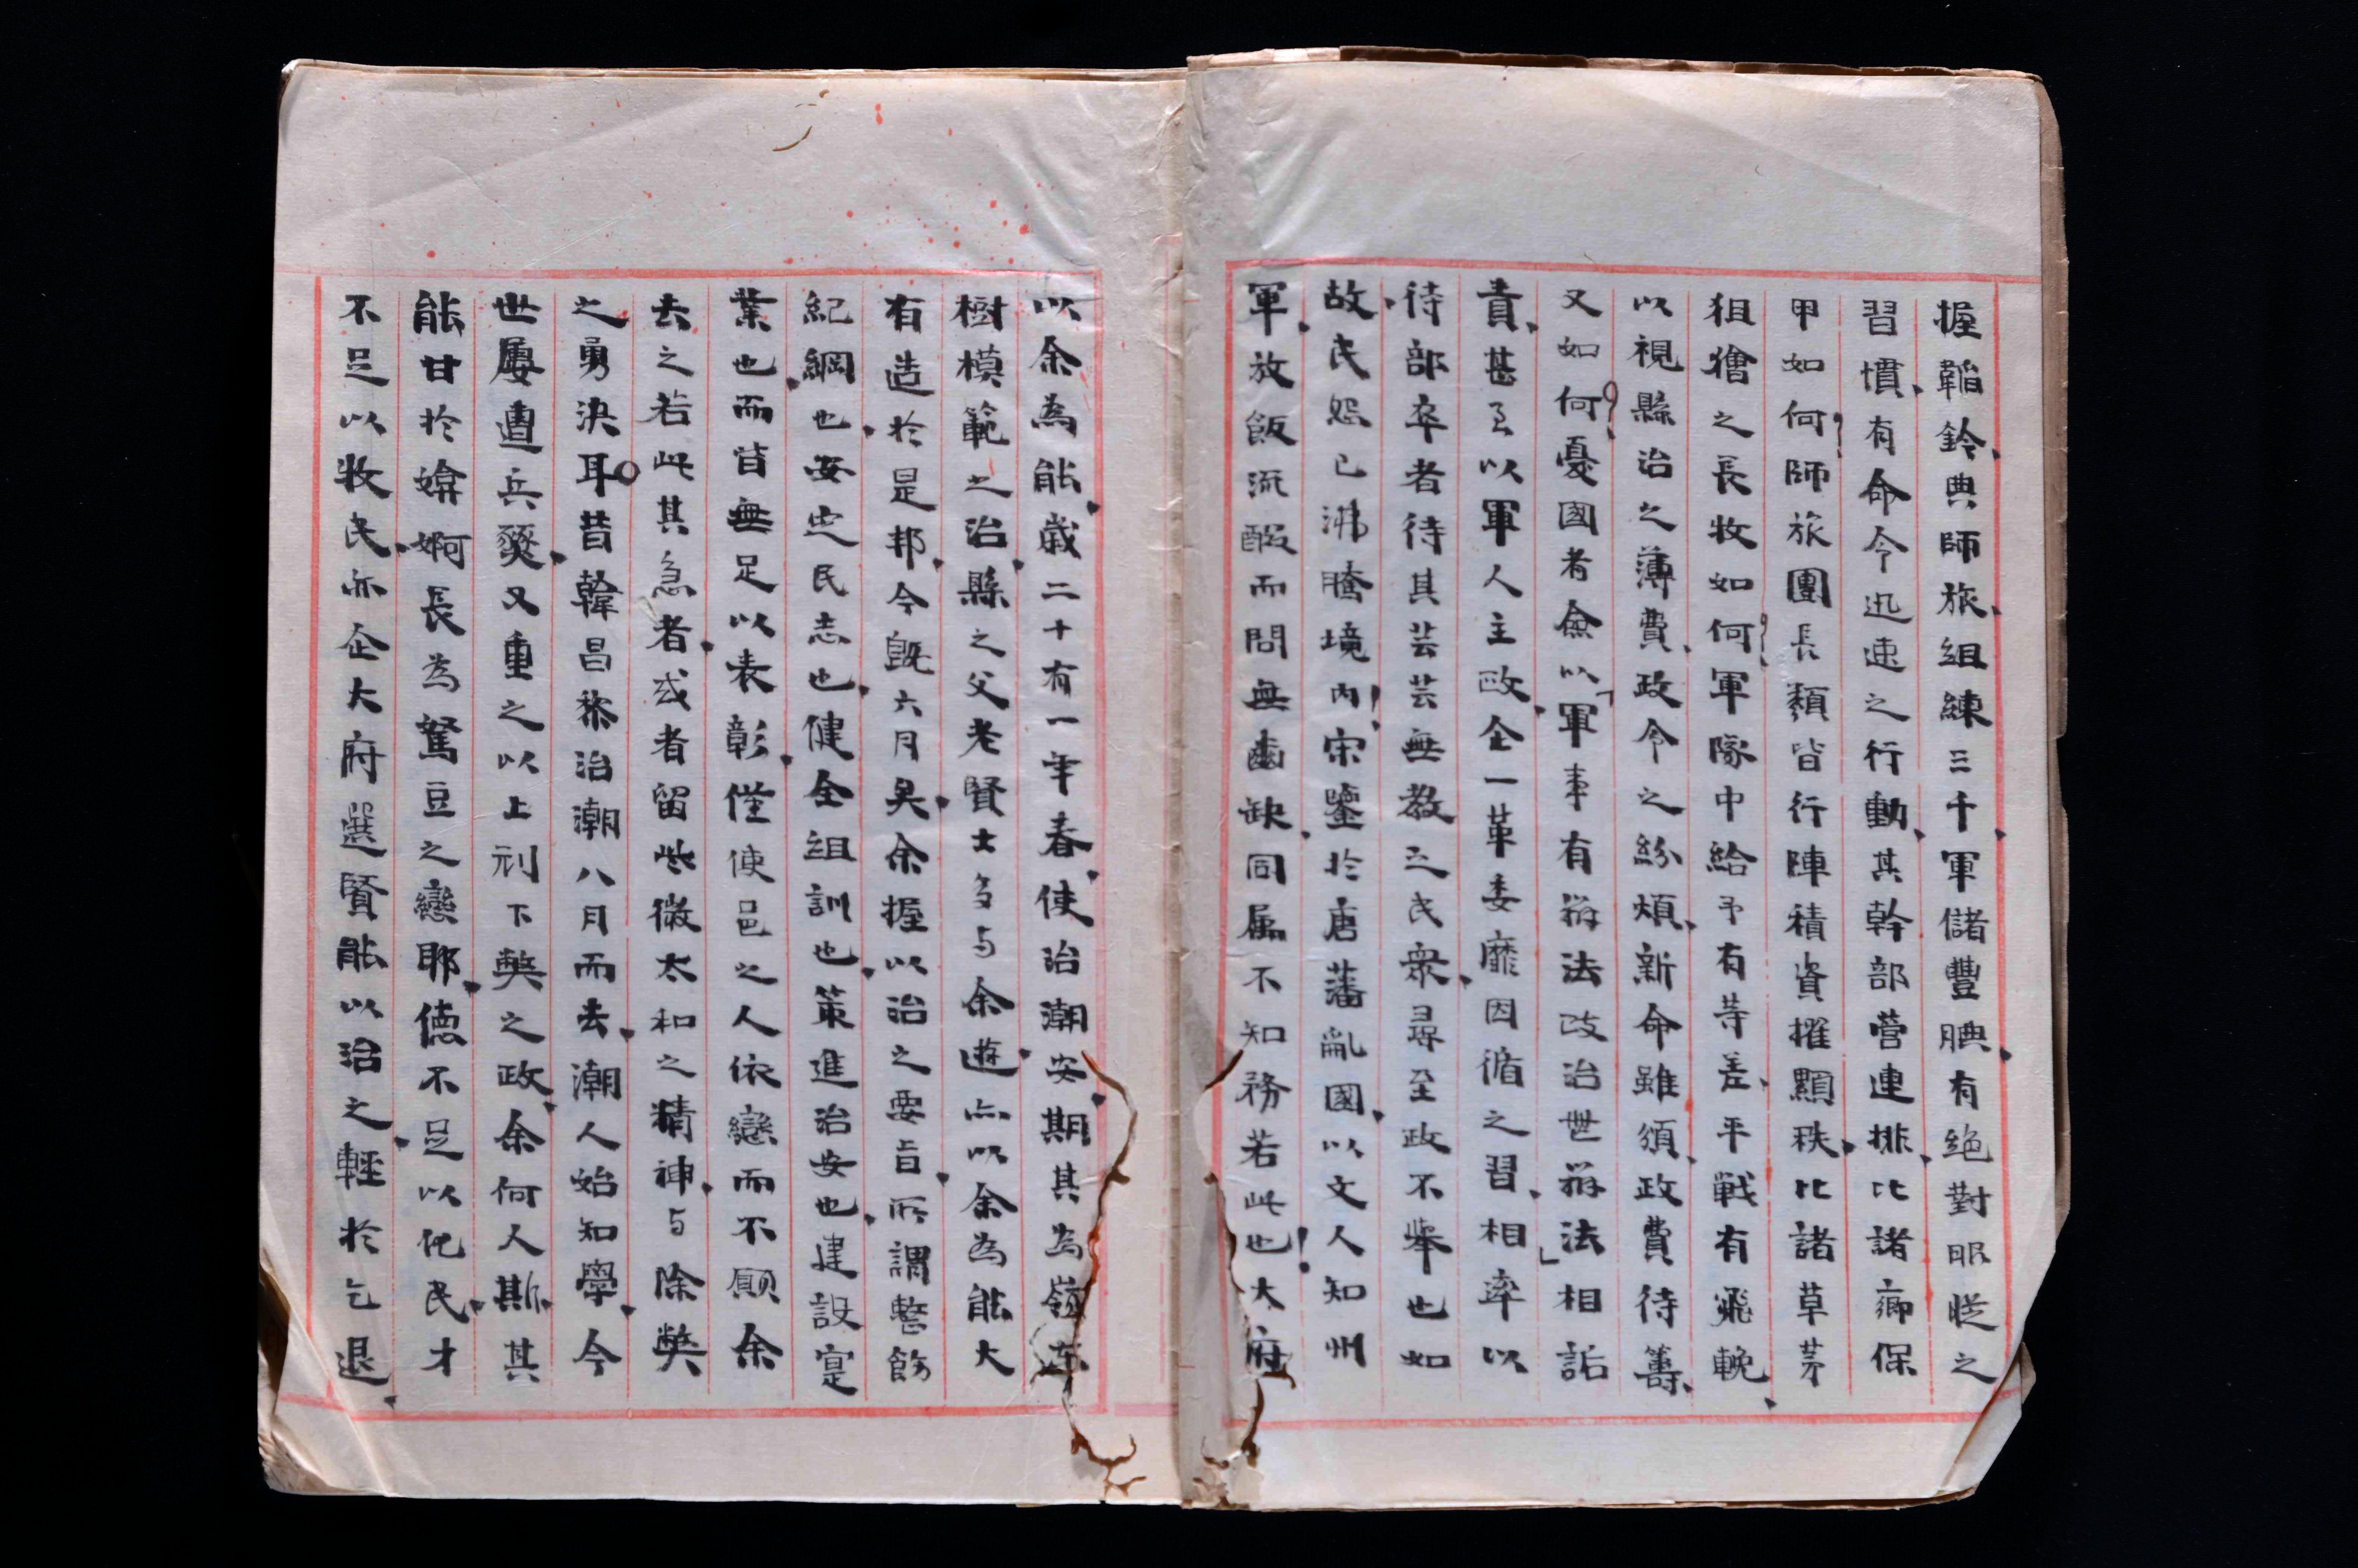 握韜鈐、典師旅、組練三千、軍儲豐腆、有絕對服從之
習慣、有命令迅速之行動、其幹部營連排、比諸鄉保
甲如何？師旅團長類皆行陣積資擢顯秩、比諸草茅
狙獪之長牧如何？軍隊中給予有等差、平戰有飛輓、
以視縣治之薄費、政令之紛煩、新命雖頒、政費待籌、
又如何？憂國者僉以「軍事有辦法政治無辦法」相詬
責、甚至以軍人主政、仝一萎靡因循之習、相率以
待部卒者待其芸芸無教之民衆、尋至政不舉也如
故、民怨已沸騰境內！宋鑒於唐藩亂國、以文人知州
軍、放飯流歠而問無齒缺、同屬不知務若此也！大府
以余為能、歲二十有一年春、使治潮安、期其為嶺東
樹模範之治、縣之父老賢士多与余遊、亦以余為能大
有造於是邦、今旣六月矣、余握以治之要旨、所謂整飭
紀綱也、安定民志也、健全組訓也、策進治安也、建設寔
業也、而皆無足以表彰、僅使邑之人依戀而不願余
去之若此其急者、或者留些微太和之精神、与除獘
之勇決耳。昔韓昌黎治潮八月而去、潮人始知學、今
世屢遭兵燹、又重之以上刓下獘之政、余何人斯、其
能甘於媕婀長為駑豆之戀耶、德不足以化民、才
不足以牧民、亦企大府選賢能以治之、輕於乞退、